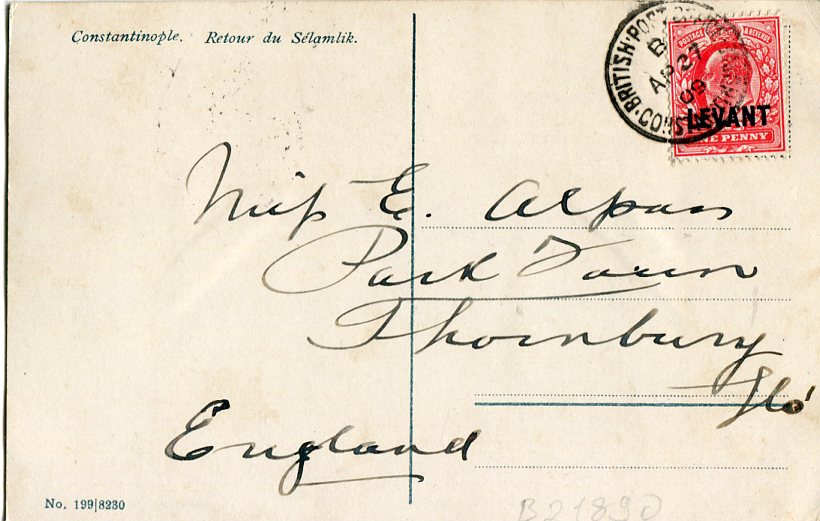 Constantinople. Retour du Sélamlik.
BRITISH POST OFFICE
B
AP 27
09
CONSTANTINOPLE
POSTAGE & REVENUE
LEVANT
ONE PENNY
Miss E.
Park Farm
Thornbury
Glo'
England
No. 199|8230
B21890